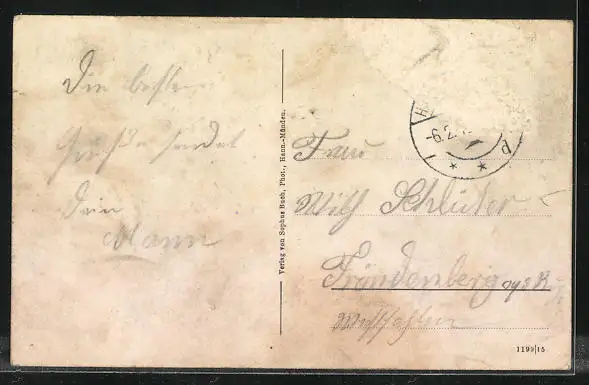 Die besten
Grüße sendet
Dein
Mann
Verlag von Sophus Buch, Phot., Hann.-Münden.
-6.2.
d
Frau
Wilh Schlüter
Fröndenberg
Westfalen
1199|15